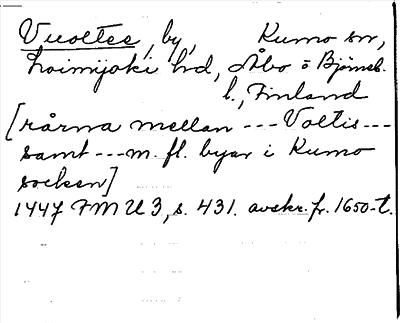 Vuoltee, by, Kumo sn,
Loimijoki hd, Åbo o Björneb.
l., Finland
[rårna mellan --- Voltis ---
samt --- m. fl. byar i Kumo
socken]
1447 FMU 3, s. 431. avskr. fr. 1650-t.